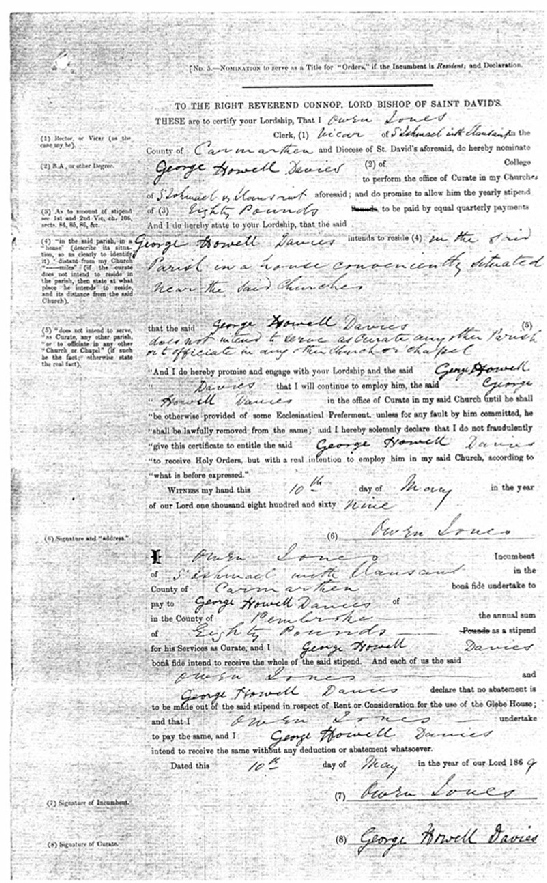 [No. 5.—NOMINATION to serve as a Title for "Orders," if the Incumbent is Resident; and Declaration.
TO THE RIGHT REVEREND CONNOP, LORD BISHOP OF SAINT DAVID'S.
THESE are to certify your Lordship, That I Owen Jones
(1) Rector, or Vicar (as the case may be).
Clerk, (1) Vicar of S Ishmael with Llansaint in the
County of Carmarthen and Diocese of St. David's aforesaid, do hereby nominate
(2) B.A., or other Degree.
George Howell Davies (2) of College
to perform the office of Curate in my Churches
of S Ishmael & Llansaint aforesaid; and do promise to allow him the yearly stipend
(3) As to amount of stipend see 1st and 2nd Vic., ch. 106, sects. 84, 85, 86, &c.
of (3) Eighty Pounds Pounds, to be paid by equal quarterly payments
And I do hereby state to your Lordship, that the said
(4) "in the said parish, in a house" (describe its situation, so as clearly to identify it) "distant from my Church —miles" (if the curate does not intend to reside in the parish, then state at what place he intends to reside, and its distance from the said Church).
George Howell Davies intends to reside (4) in the said
Parish in a house conveniently situated
near the said Churches
that the said George Howell Davies (5)
(5) "does not intend to serve, as Curate, any other Parish, or to officiate in any other Church or Chapel" (if such be the fact; otherwise state the real fact).
does not intend to serve as Curate any other Parish
or officiate in any other Church or Chapel
And I do hereby promise and engage with your Lordship and the said George Howell
Davies that I will continue to employ him, the said George
"Howell Davies in the office of Curate in my said Church until he shall
"be otherwise provided of some Ecclesiastical Preferment, unless for any fault by him committed, he
"shall be lawfully removed from the same;' and I hereby solemnly declare that I do not fraudulently
"give this certificate to entitle the said George Howell Davies
"to receive Holy Orders, but with a real intention to employ him in my said Church, according to
"what is before expressed."
WITNESS my hand this 10th day of May in the year
of our Lord one thousand eight hundred and sixty Nine
(6) Signature and "address."
(6) Owen Jones
I Owen Jones Incumbent
of S Ishmael with Llansaint in the
County of Carmarthen bonâ fide undertake to
pay to George Howell Davies of
in the County of Pembroke the annual sum
of Eighty Pounds Pounds as a stipend
for his Services as Curate, and I George Howell Davies
bonâ fide intend to receive the whole of the said stipend. And each of us the said
Owen Jones and
George Howell Davies declare that no abatement is
to be made out of the said stipend in respect of Rent or Consideration for the use of the Glebe House;
and that I Owen Jones undertake
to pay the same, and I George Howell Davies
intend to receive the same without any deduction or abatement whatsoever.
Dated this 10th day of May in the year of our Lord 1869
(7) Signature of Incumbent.
(7) Owen Jones
(8) Signature of Curate.
(8) George Howell Davies